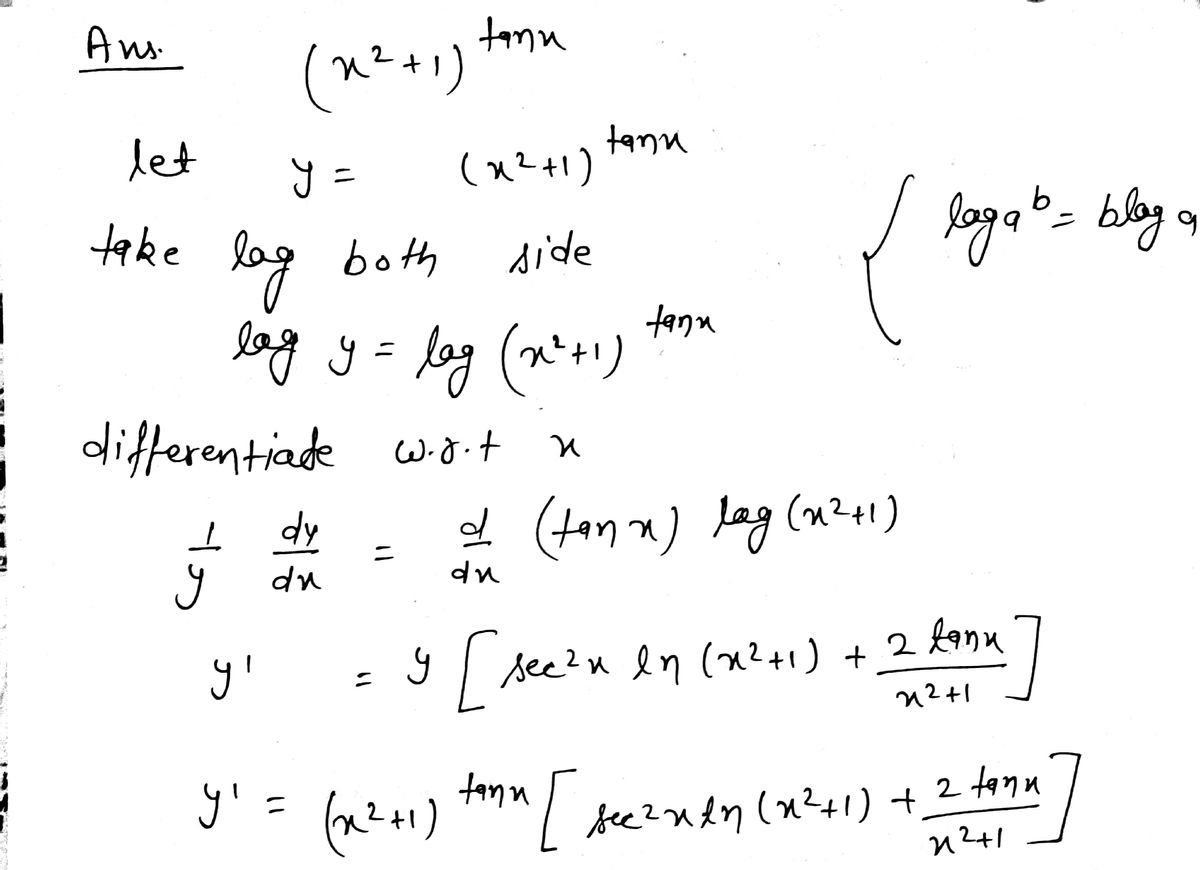 Ans. (x²+1)^tanx
let y = (x²+1)^tanx
take log both side { log a^b = b log a
log y = log (x²+1)^tanx
differentiate w.r.t x
1/y dy/dx = d/dx (tan x) log (x²+1)
y' = y [ sec²x ln (x²+1) + 2 tanx/x²+1 ]
y' = (x²+1)^tanx [ sec²x ln (x²+1) + 2 tanx/x²+1 ]